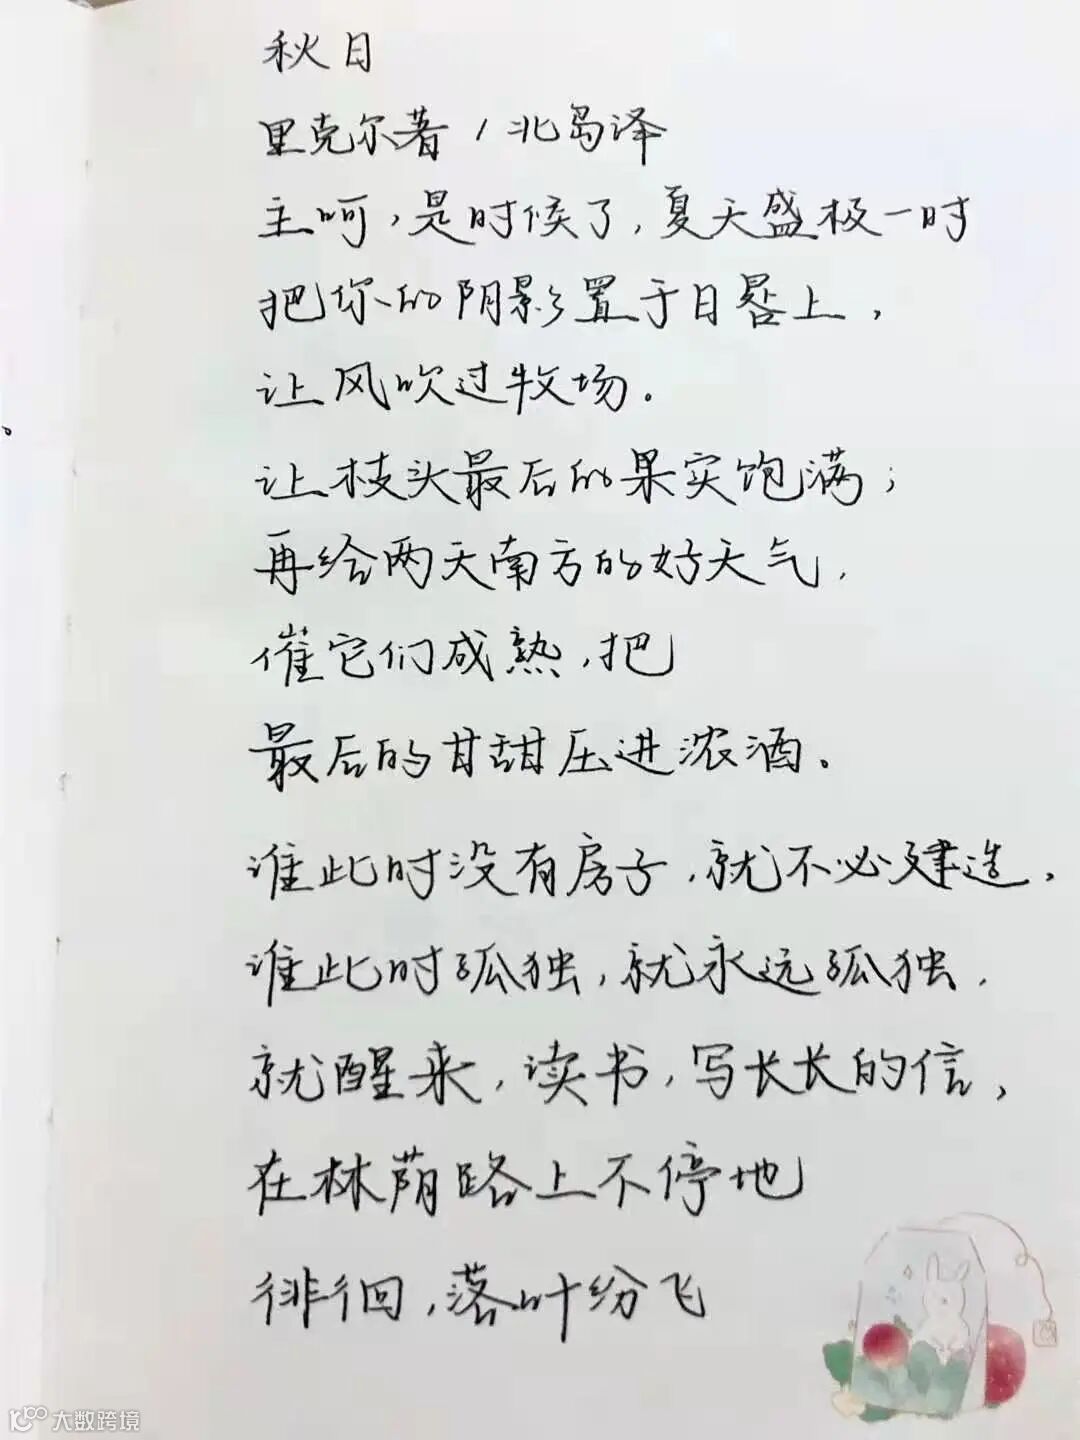 秋日
里克尔著/北岛译
主呵,是时候了,夏天盛极一时
把你的阴影置于日晷上,
让风吹过牧场。
让枝头最后的果实饱满;
再给两天南方的好天气,
催它们成熟,把
最后的甘甜压进浓酒。
谁此时没有房子,就不必建造,
谁此时孤独,就永远孤独,
就醒来,读书,写长长的信,
在林荫路上不停地
徘徊,落叶纷飞
大数跨境